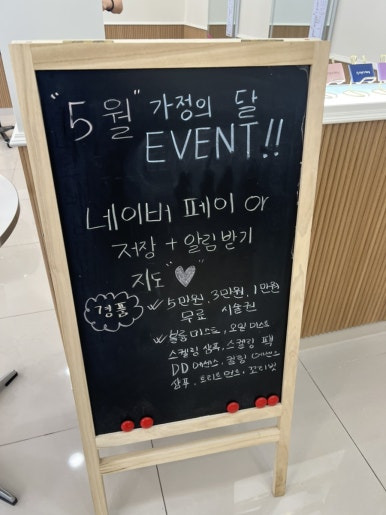 "5월" 가정의 달
EVENT!!
네이버 페이 or
저장 + 알림받기
지도 "♥"
경품
✓ 5만원, 3만원, 1만원
무료 시술권
✓ 볼륨미스트, 오일 미스트
스켈링 샴푸, 스켈링 팩
DD 에센스, 컬링 에센스
샴푸, 트리트먼트, 꼬리빗